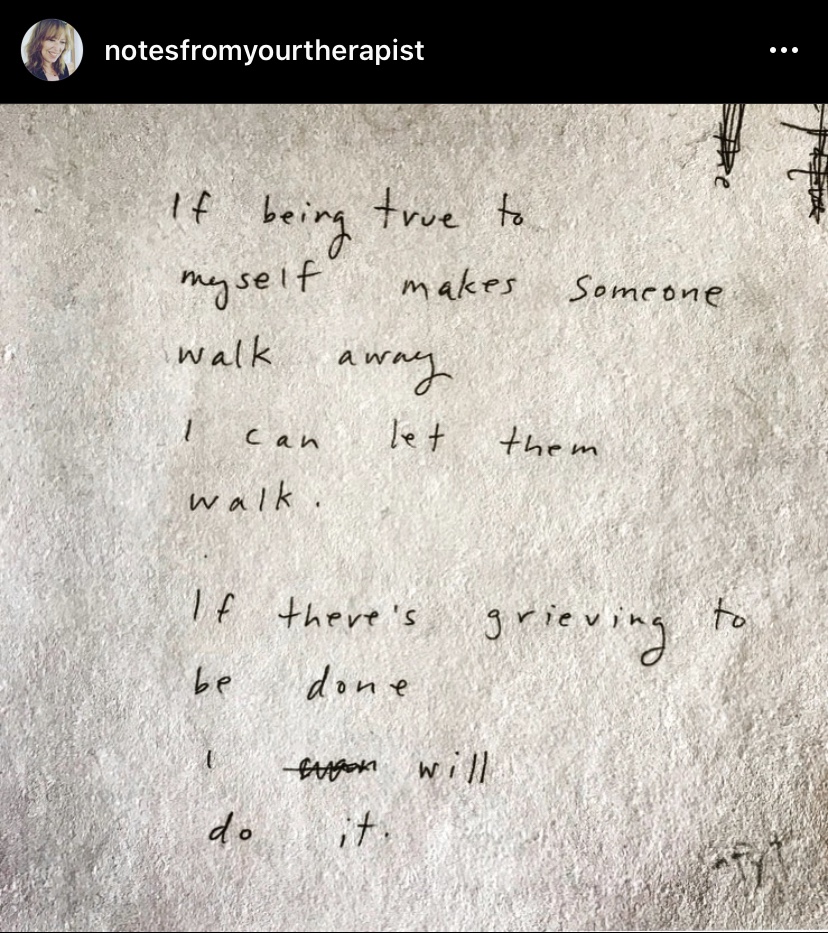 notesfromyourtherapist
If being true to
myself makes someone
walk away
I can let them
walk.
If there's grieving to
be done
I will
do it.
nfyt